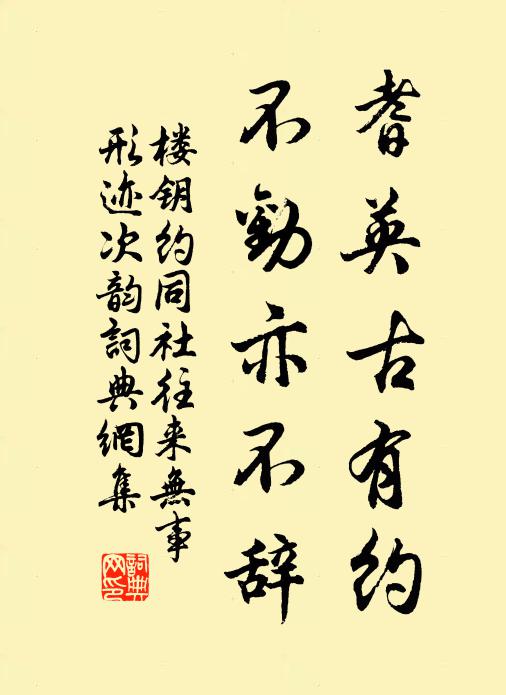 耆英古有约
不勸亦不辞
楼钥约同社往来無事
形迹次韵詞典網集
詞典
网印